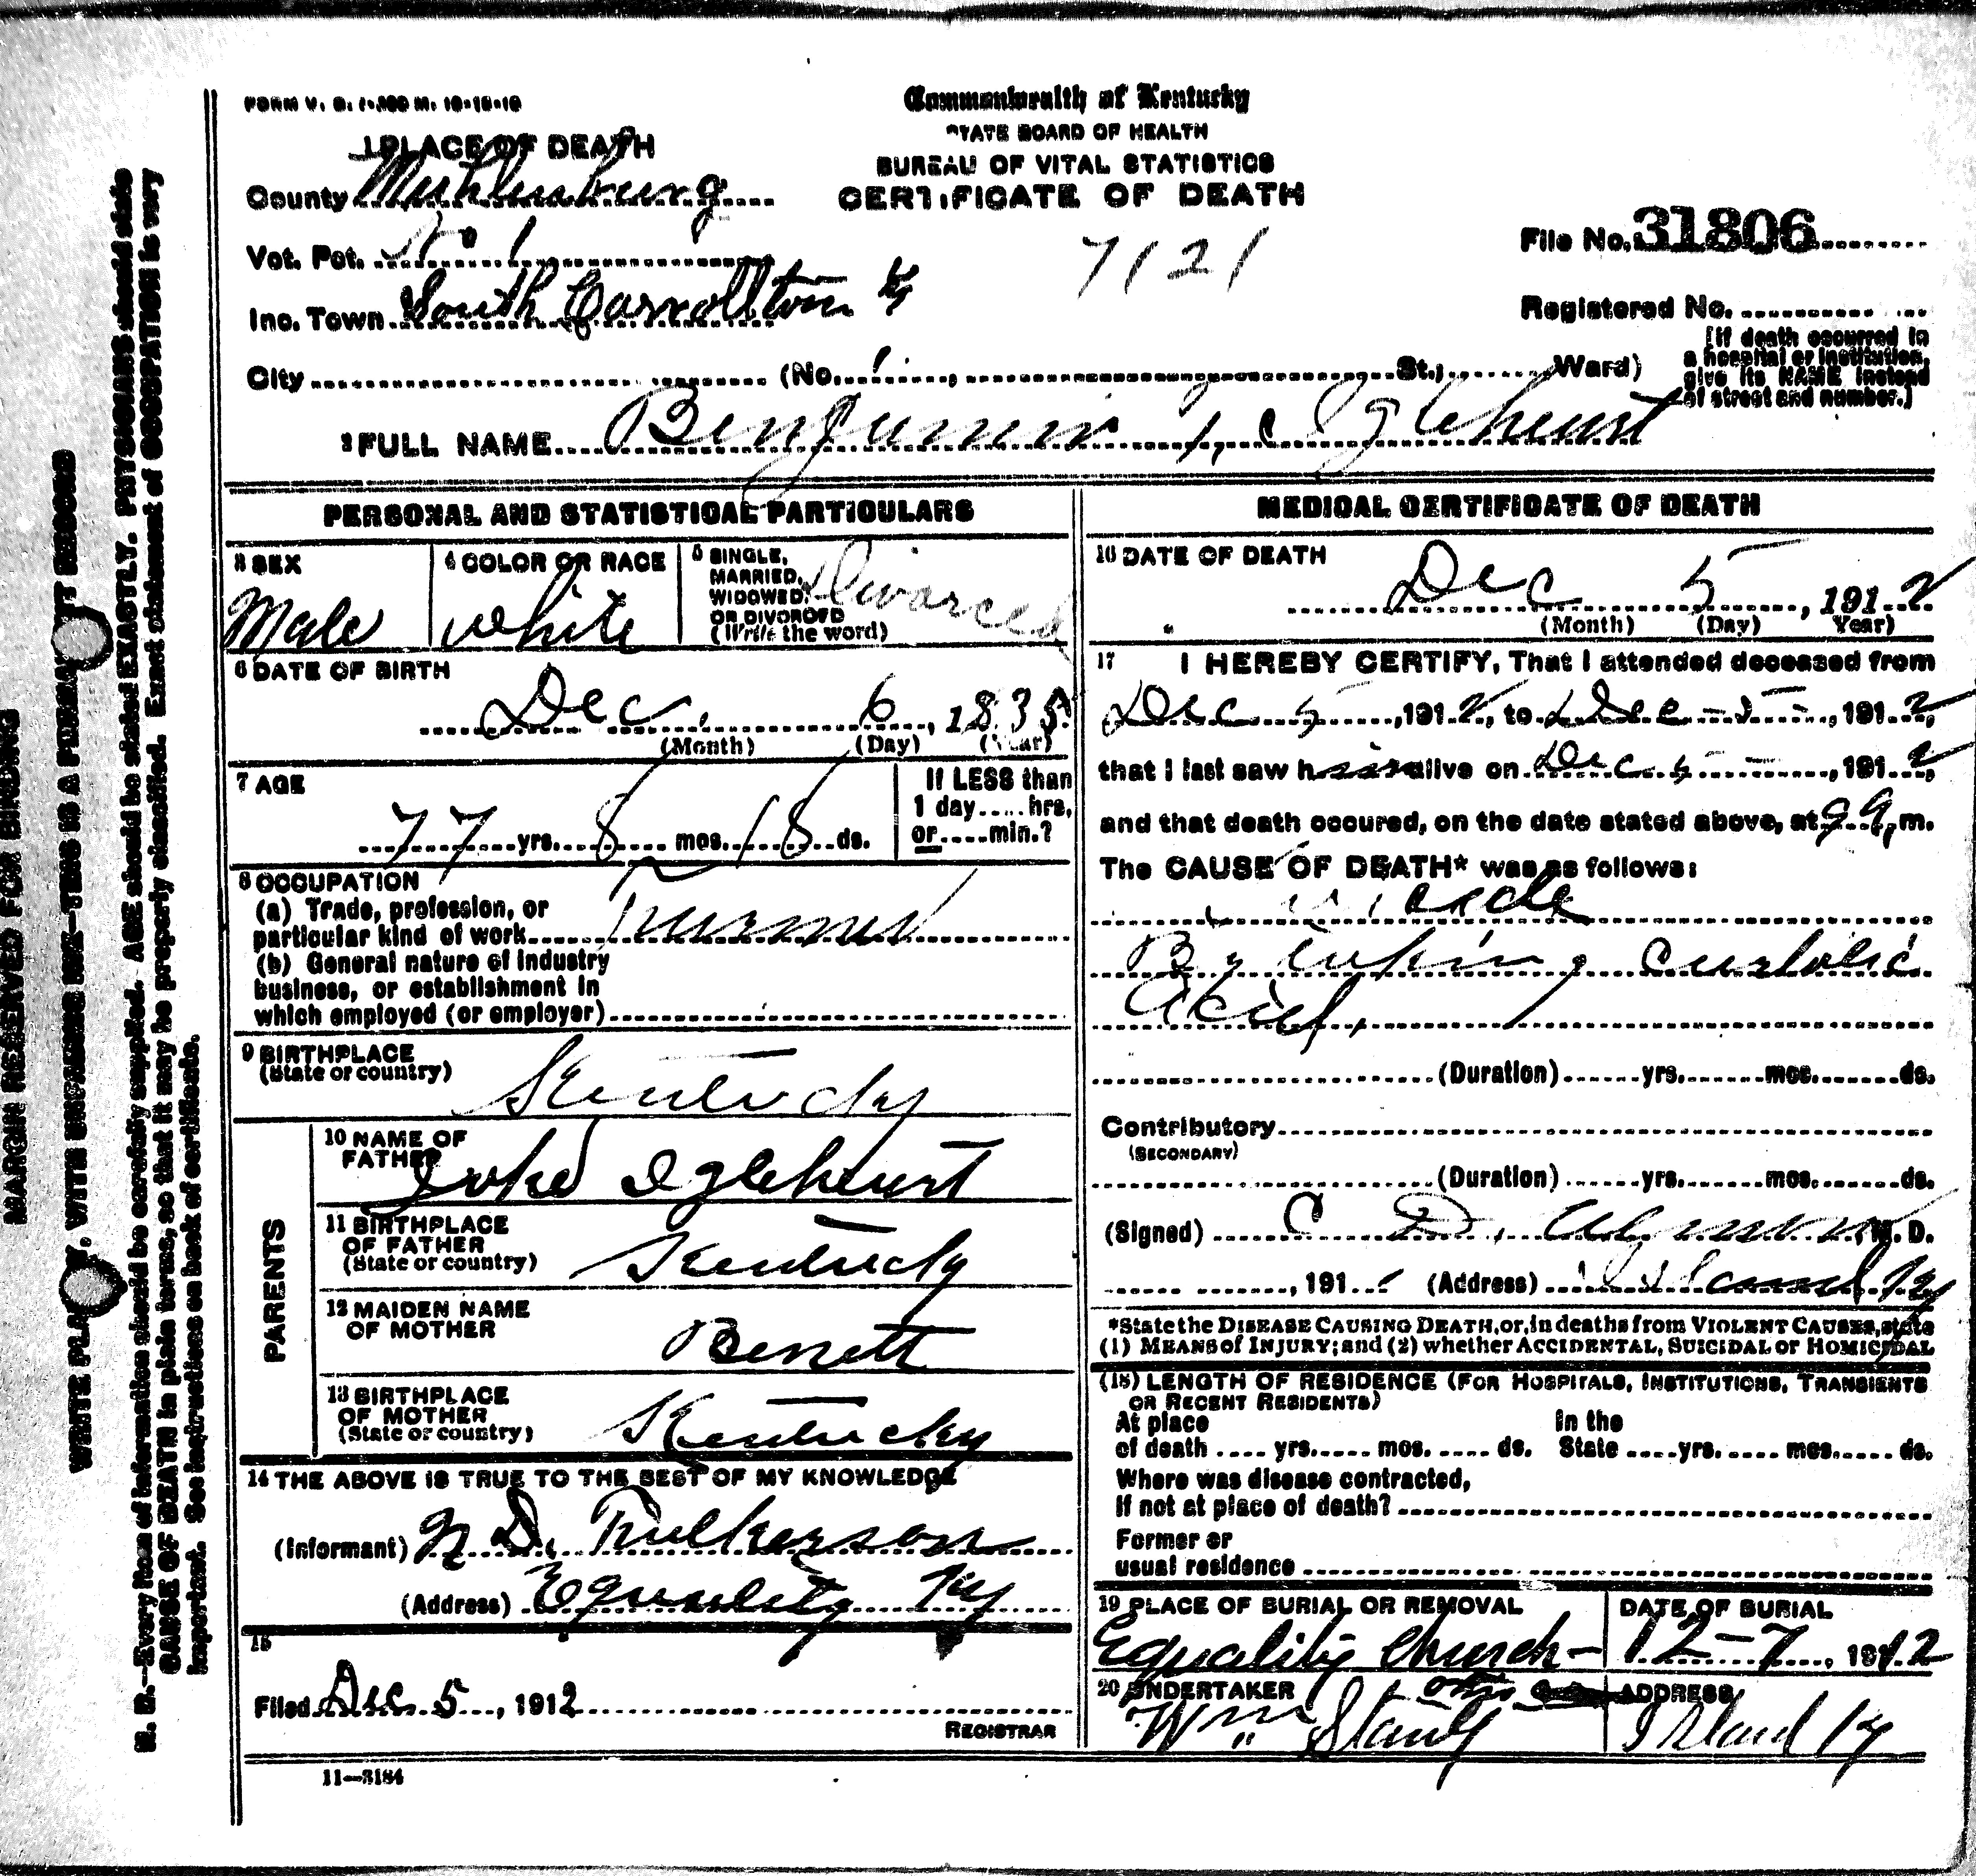 FORM V. S. 1-100 M. 10-18-10
Commonwealth of Kentucky
STATE BOARD OF HEALTH
BUREAU OF VITAL STATISTICS
CERTIFICATE OF DEATH
1 PLACE OF DEATH
County Muhlenburg
Vot. Pct. No 1
Inc. Town South Carrollton Ky
City (No. St.; Ward)
7121
File No. 31806
Registered No.
[If death occurred in
a hospital or institution,
give its NAME instead
of street and number.]
2 FULL NAME Benjamin T, Igleheart
PERSONAL AND STATISTICAL PARTICULARS
3 SEX
Male
4 COLOR OR RACE
White
5 SINGLE,
MARRIED,
WIDOWED,
OR DIVORCED
(Write the word)
Divorced
6 DATE OF BIRTH
Dec. 6, 1835
(Month) (Day) (Year)
7 AGE
77 yrs. 8 mos. 18 ds.
If LESS than
1 day.... hrs.
or....min.?
8 OCCUPATION
(a) Trade, profession, or
particular kind of work Farmer
(b) General nature of industry
business, or establishment in
which employed (or employer)
9 BIRTHPLACE
(State or country)
Kentucky
PARENTS
10 NAME OF
FATHER
Igleheart
11 BIRTHPLACE
OF FATHER
(State or country)
Kentucky
12 MAIDEN NAME
OF MOTHER
Benett
13 BIRTHPLACE
OF MOTHER
(State or country)
Kentucky
14 THE ABOVE IS TRUE TO THE BEST OF MY KNOWLEDGE
(Informant) N D. Fulkerson
(Address) Equality Ky
15
Filed Dec 5, 1912
REGISTRAR
11—3184
MEDICAL CERTIFICATE OF DEATH
16 DATE OF DEATH
Dec 5, 1912
(Month) (Day) Year)
17 I HEREBY CERTIFY, That I attended deceased from
Dec 5, 1912, to Dec 5, 1912,
that I last saw him alive on Dec 5, 1912,
and that death occured, on the date stated above, at 9 A, m.
The CAUSE OF DEATH* was as follows:
Suicide
By taking Carbolic
Acid,
(Duration) yrs. mos. ds.
Contributory
(SECONDARY)
(Duration) yrs. mos. ds.
(Signed) C D. M. D.
, 191 (Address) Island Ky
*State the DISEASE CAUSING DEATH, or, in deaths from VIOLENT CAUSES, state
(1) MEANS of INJURY; and (2) whether ACCIDENTAL, SUICIDAL or HOMICIDAL
(18) LENGTH OF RESIDENCE (FOR HOSPITALS, INSTITUTIONS, TRANSIENTS
OR RECENT RESIDENTS)
At place In the
of death .... yrs..... mos. .... ds. State ....yrs. .... mos..... ds.
Where was disease contracted,
If not at place of death?
Former or
usual residence
19 PLACE OF BURIAL OR REMOVAL
Equality Church—
DATE OF BURIAL
12-7, 1912
20 UNDERTAKER
Wm
ADDRESS
Island Ky
MARGIN RESERVED FOR BINDING
WRITE PLAINLY, WITH UNFADING INK—THIS IS A PERMANENT RECORD
N. B.—Every item of information should be carefully supplied. AGE should be stated EXACTLY. PHYSICIANS should state
CAUSE OF DEATH in plain terms, so that it may be properly classified. Exact statement of OCCUPATION is very
important. See instructions on back of certificate.